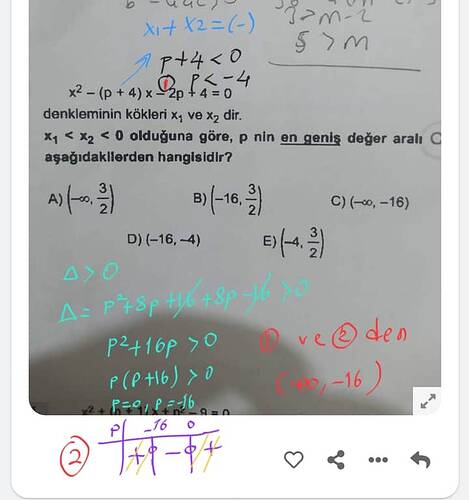 x₁ + x₂ = (-)
5 > m
p+4 < 0
① p < -4
x² – (p + 4) x – 2p + 4 = 0
denkleminin kökleri x₁ ve x₂ dir.
x₁ < x₂ < 0 olduğuna göre, p nin en geniş değer aralı
aşağıdakilerden hangisidir?
A) (-∞, 3/2) B) (-16, 3/2) C) (-∞, -16)
D) (-16, -4) E) (-4, 3/2)
Δ > 0
Δ = p²+8p+16+8p-16 > 0
p²+16p > 0
p(p+16) > 0
p=0, p=-16
① ve ② den
(-∞, -16)
② p -16 0
+ - +